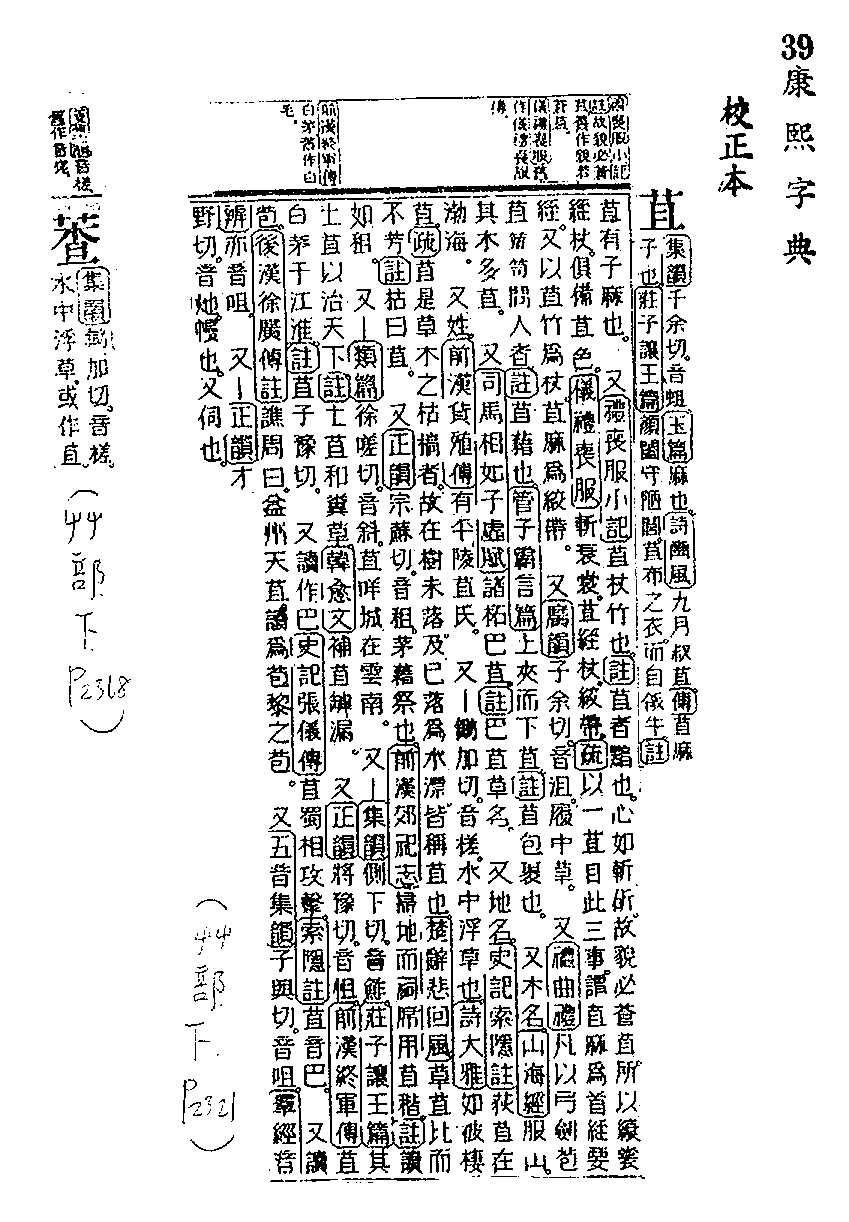 39
康熙字典
校正本
苴
集韻千余切。音蛆。玉篇麻也。詩豳風九月叔苴傳苴麻
子也。莊子讓王篇顏闔守陋閭。苴布之衣。而自飯牛註
苴有子麻也。 又禮喪服小記苴杖竹也。註苴者黯也。心如斬斫。故貌必蒼苴。所以縗裳
絰杖。俱備苴色。儀禮喪服斬衰裳。苴絰杖。絞帶。疏以一苴目此三事。謂苴麻爲首絰要
絰。又以苴竹爲杖。苴麻爲絞帶。 又廣韻子余切。音沮。履中草。 又禮曲禮凡以弓劍苞
苴簞笥問人者註苴藉也。管子霸言篇上夾而下苴註苴包裹也。 又木名。山海經服山。
其木多苴。 又司馬相如子虛賦諸柘巴苴。註巴苴草名。 又地名。史記索隱註荻苴在
渤海。 又姓。前漢貨殖傳有平陵苴氏。 又鋤加切。音槎。水中浮草也。詩大雅如彼棲
苴。疏苴是草木之枯槁者。故在樹未落及已落爲水漂皆稱苴也。楚辭悲回風草苴比而
不芳註枯曰苴。 又正韻宗蘇切。音租。茅藉祭也。前漢郊祀志掃地而祠。席用苴稭。註讀
如租。 又類篇徐嗟切。音斜。苴咩城在雲南。 又集韻側下切。音鮓。莊子讓王篇其
土苴以治天下註土苴和糞草。韓愈文補苴罅漏。 又正韻將豫切。音怚。前漢終軍傳苴
白茅于江淮。註苴子豫切。 又讀作巴。史記張儀傳苴蜀相攻擊。索隱註苴音巴。 又讀
苞。後漢徐廣傳註譙周曰。益州天苴。讀爲苞黎之苞。 又五音集韻子與切。音咀。羣經音
辨亦音咀。 又正韻才
野切。音灺。慢也。又伺也。
禮喪服小記
註故貌必蒼
苴舊作貌若
蒼苴。
儀禮喪服舊
作儀禮喪服
傳。
前漢終軍傳
白茅舊作白
毛。
蒩
集韻鋤加切。音槎。
水中浮草。或作苴。
(艸部下P2318)
(艸部下P2321)